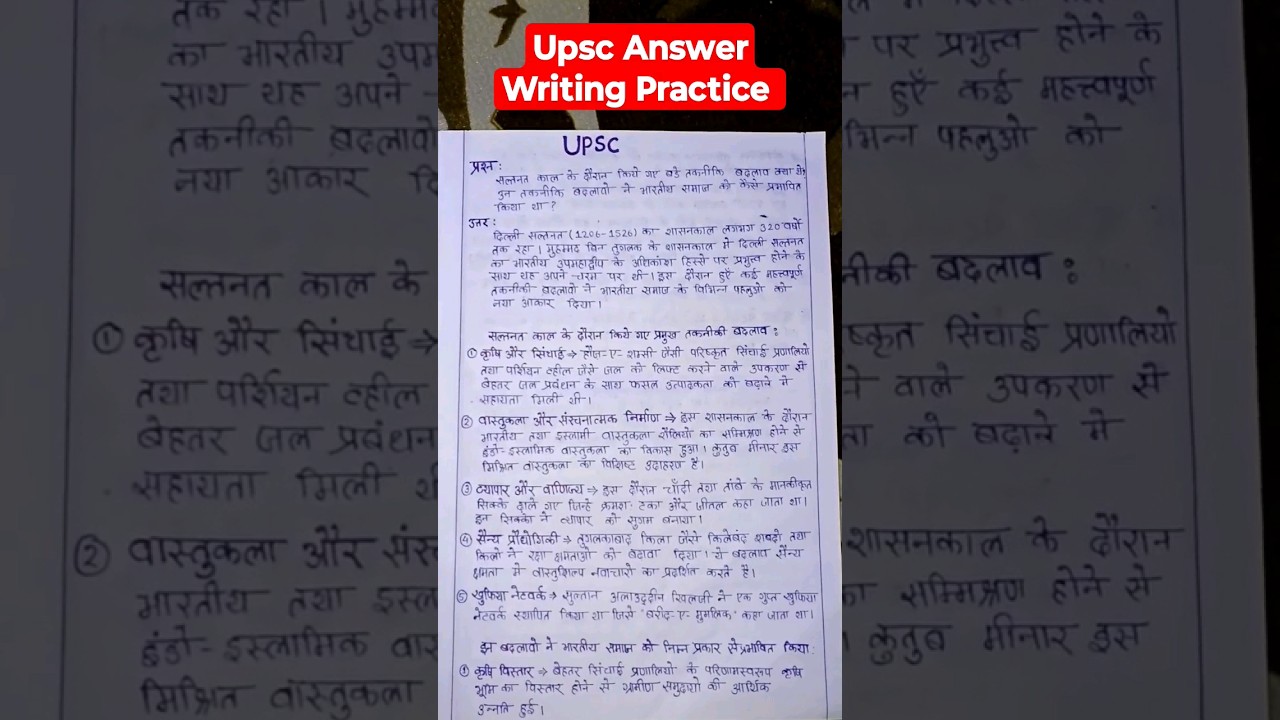 Upsc Answer
Writing Practice
UPSC
प्रश्न:
सल्तनत काल के दौरान किये गए बड़े तकनीकि बदलाव क्या थे?
इन तकनीकि बदलावो ने भारतीय समाज को कैसे प्रभावित
किया था ?
उत्तर:
दिल्ली सल्तनत (1206-1526) का शासनकाल लगभग 320 वर्षो
तक रहा । मुहम्मद बिन तुगलक के शासनकाल में दिल्ली सल्तनत
का भारतीय उपमहाद्वीप के अधिकांश हिस्से पर प्रभुत्त्व होने के
साथ यह अपने चरम पर थी । इस दौरान हुएँ कई महत्त्वपूर्ण
तकनीकी बदलावो ने भारतीय समाज के विभिन्न पहलुओ को
नया आकार दिया ।
सल्तनत काल के दौरान किये गए प्रमुख तकनीकी बदलाव :
① कृषि और सिंचाई ⇒ हौज-ए-शम्सी जैसी परिष्कृत सिंचाई प्रणालियो
तथा पर्शियन व्हील जैसे जल को लिफ्ट करने वाले उपकरण से
बेहतर जल प्रबंधन के साथ फसल उत्पादकता को बढ़ाने मे
सहायता मिली थी ।
② वास्तुकला और संरचनात्मक निर्माण ⇒ इस शासनकाल के दौरान
भारतीय तथा इस्लामी वास्तुकला शैलियो का सम्मिश्रण होने से
इंडो-इस्लामिक वास्तुकला का विकास हुआ । कुतुब मीनार इस
मिश्रित वास्तुकला का विशिष्ट उदाहरण है ।
③ व्यापार और वाणिज्य ⇒ इस दौरान चाँदी तथा तांबे के मानकीकृत
सिक्के ढाले गए जिन्हे क्रमश: टका और जीतल कहा जाता था ।
इन सिक्को ने व्यापार को सुगम बनाया ।
④ सैन्य प्रौद्योगिकी ⇒ तुगलकाबाद किला जैसे किलेबंद शहरो तथा
किलो ने रक्षा क्षमताओ को बढावा दिया । ये बदलाव सैन्य
क्षमता मे वास्तुशिल्प नवाचारो का प्रदर्शित करते है ।
⑤ खुफिया नेटवर्क ⇒ सुल्तान अलाउद्दीन खिलजी ने एक गुप्त खुफिया
नेटवर्क स्थापित किया था जिसे 'बरीद-ए-मुमलिक' कहा जाता था ।
इन बदलावो ने भारतीय समाज को निम्न प्रकार से प्रभावित किया :
① कृषि विस्तार ⇒ बेहतर सिंचाई प्रणालियो के परिणामस्वरूप कृषि
भूमि का विस्तार होने से ग्रामीण समुदायो की आर्थिक
उन्नति हुई ।